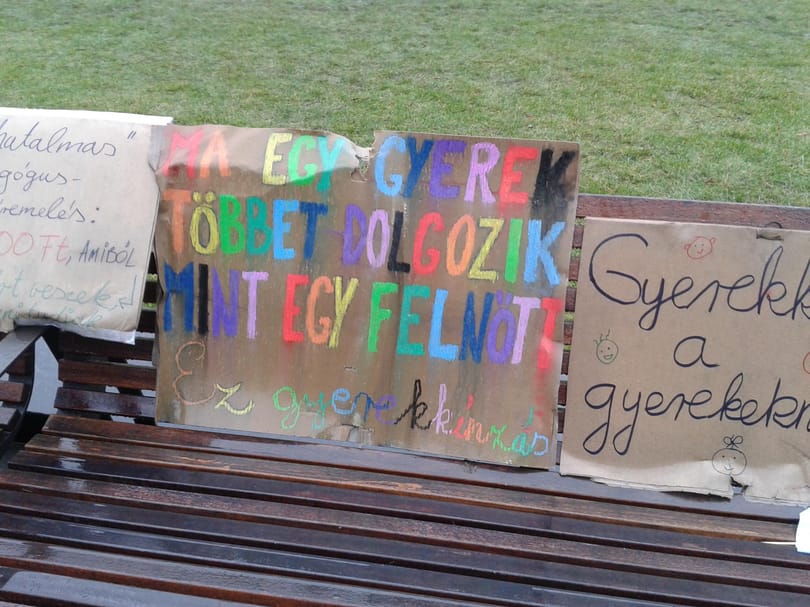 hatalmas"
gógus-
emelés:
00 Ft, AMIBÓL
MA EGY GYEREK
TÖBBET DOLGOZIK
MINT EGY FELNŐTT
Ez gyerekkínzás
Gyerekk
a
gyerekekn